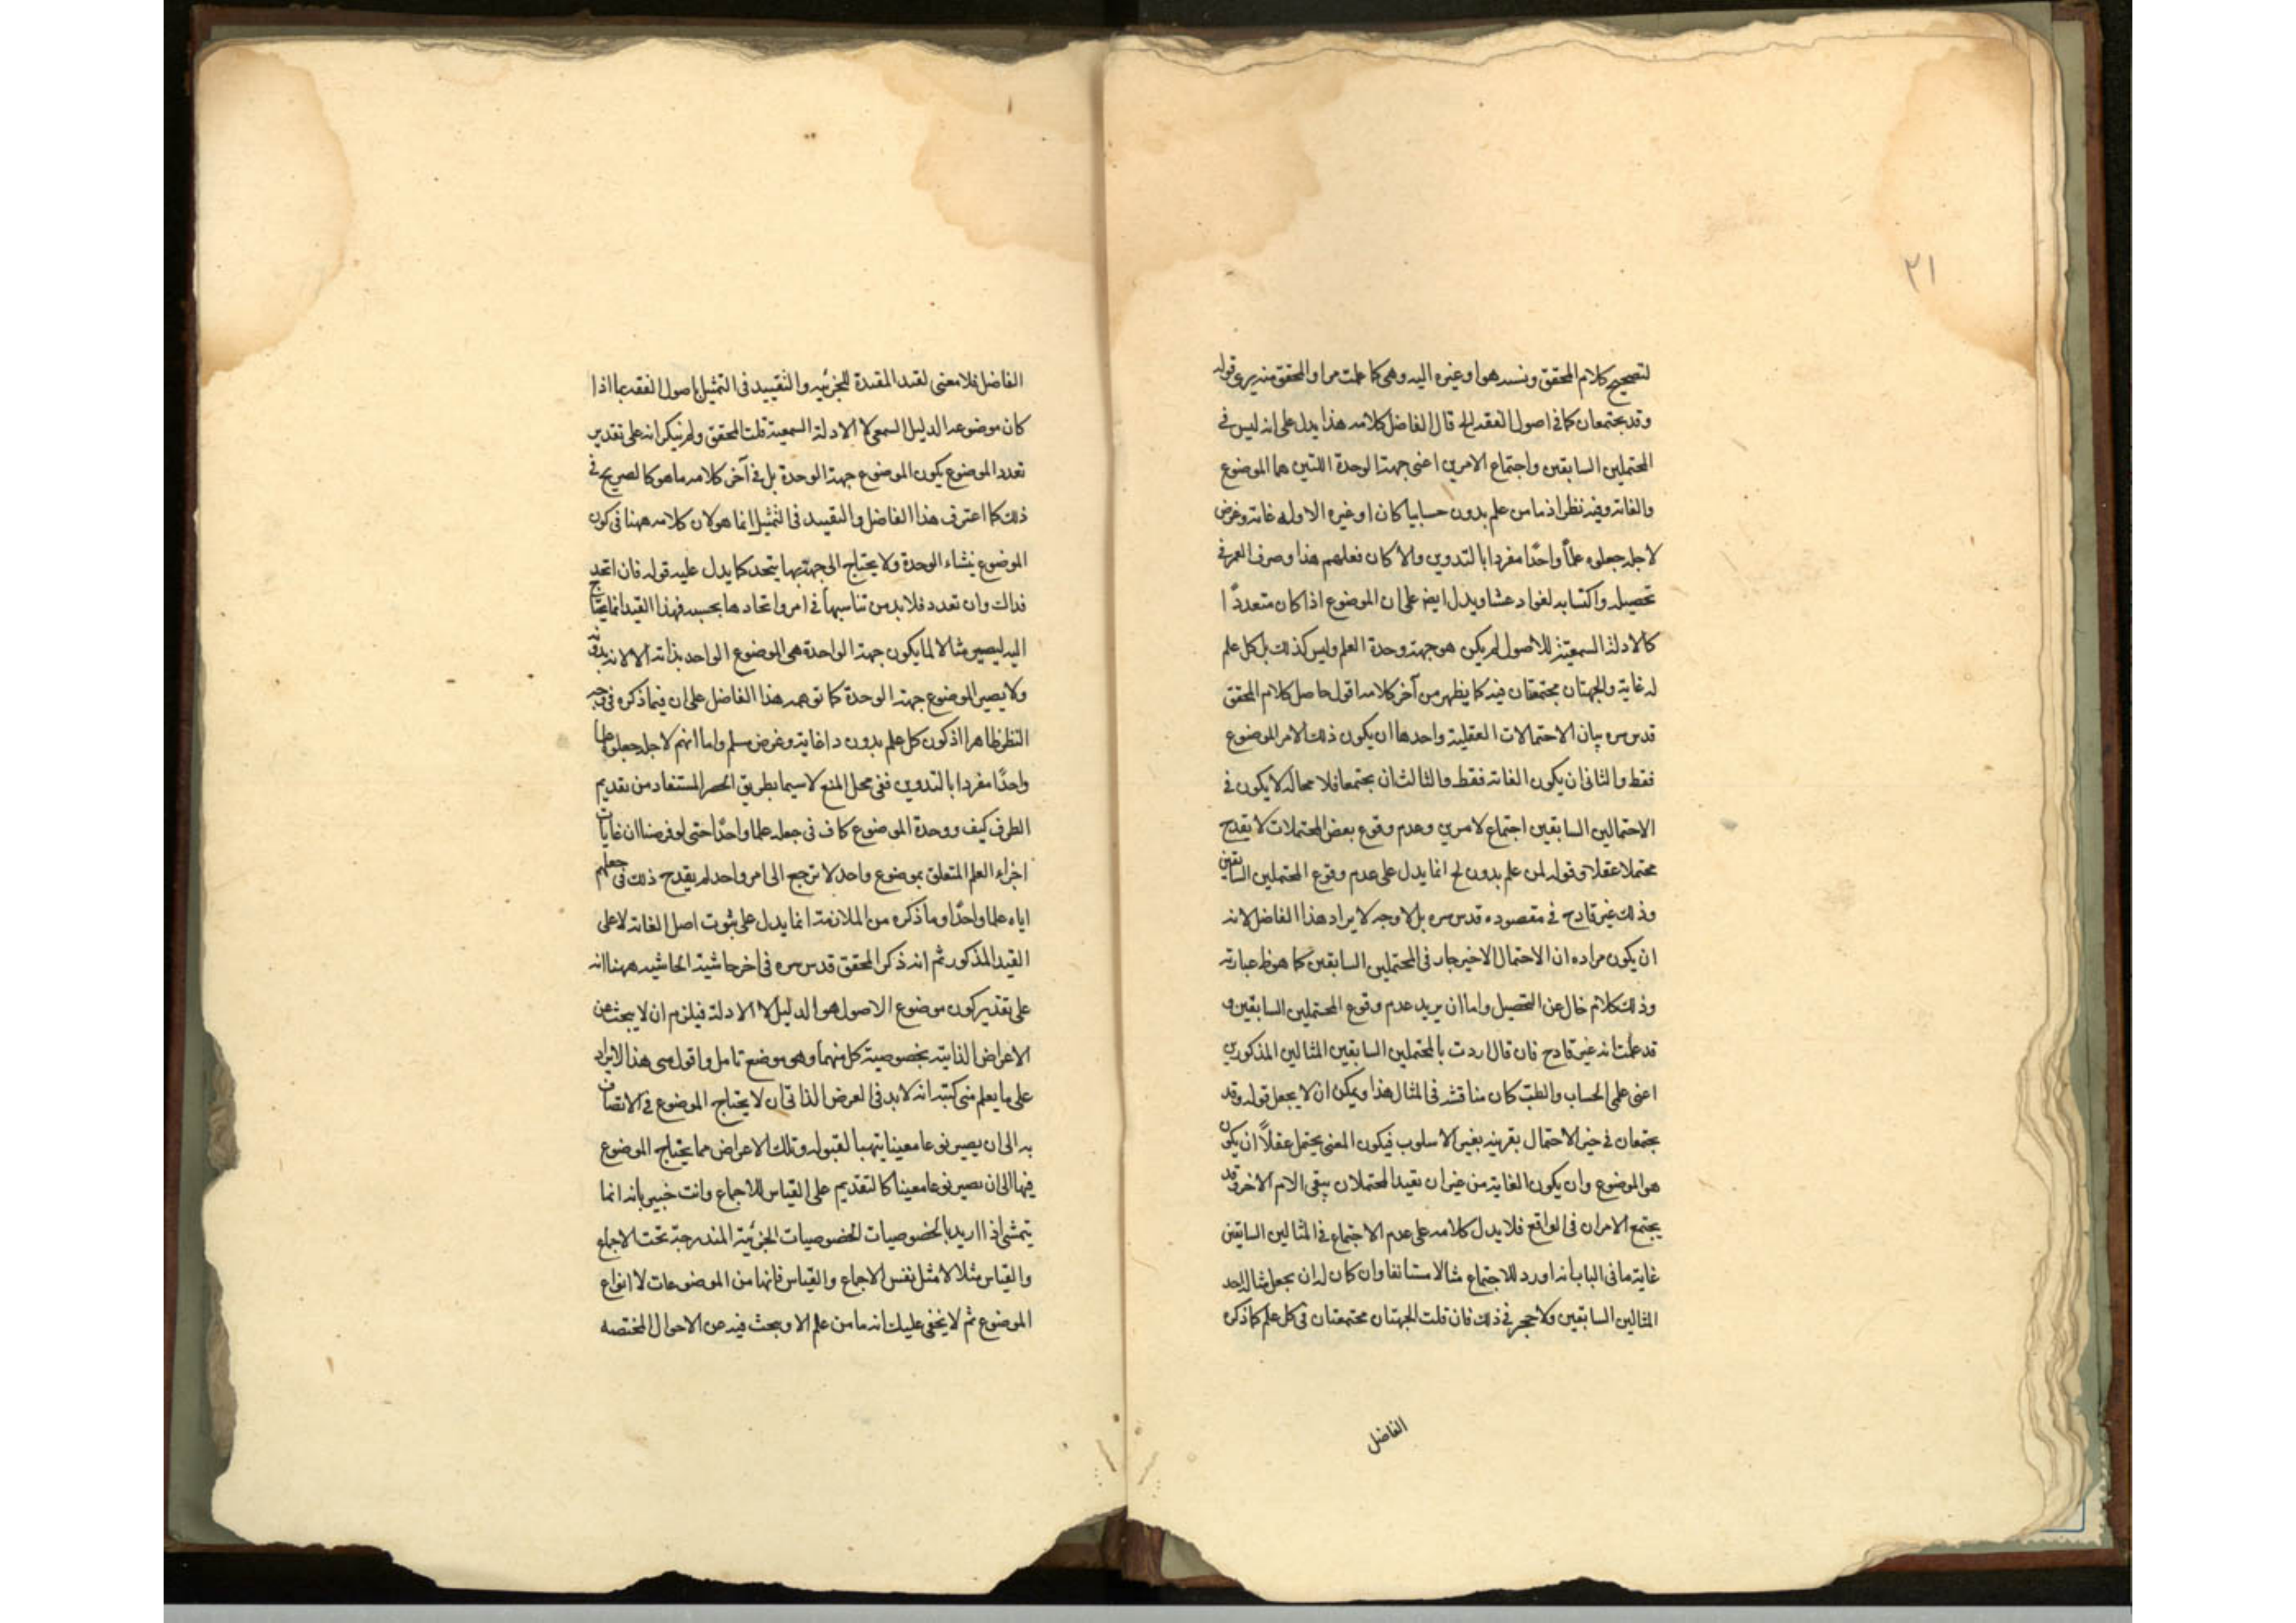 ٢١
لتصحيح كلام المحقق ونسبه هو او غيره اليه وهي كما علمت مرا والمحقق منه برى قوله
وقد يجتمعان كما في اصول الفقه الخ قال الفاضل كلامه هذا يدل على انه ليس في
المحتملين السابقين واجتماع الامرين اعنى جهة الوحدة اللتين هما الموضوع
والغاية وفيه نظر اذ ما من علم يدون حسابيا كان او غيره الا وله غاية وغرض
لاجله جعلوه علماً واحدًا مفردا بالتدوين والا كان فعلهم هذا وصرف العمر في
تحصيله واكتسابه لغوا وعبثا ويدل ايض على ان الموضوع اذا كان متعددًا
كالادلة السمعية للاصول لم يكن هو جهة وحدة العلم وليس كذلك بل كل علم
له غاية والجهتان مجتمعتان فيه كما يظهر من آخر كلامه اقول حاصل كلام المحقق
قدس سره بيان الاحتمالات العقلية واحدها ان يكون ذلك الامر الموضوع
فقط والثانى ان يكون الغاية فقط والثالث ان يجتمعا فلا محالة لا يكون في
الاحتمالين السابقين اجتماع لامرين وعدم وقوع بعض المحتملات لا يقدح
محتملا عقلا وقوله لمن علم يدون الخ انما يدل على عدم وقوع المحتملين السابقين
وذلك غير قادح في مقصوده قدس سره بل لا وجه لايراد هذا الفاضل لانه
ان يكون مراده ان الاحتمال الاخير جار في المحتملين السابقين كما هو ظ عبارته
وذلك كلام خال عن التحصيل واما ان يريد عدم وقوع المحتملين السابقين و
قد علمت انه غير قادح فان قال اردت بالمحتملين السابقين المثالين المذكورين
اعنى علمى الحساب والطب كان مناقشة في المثال هذا ويمكن ان لا يجعل قوله وقد
يجتمعان في حيز الاحتمال بقرينة تغيير الاسلوب فيكون المعنى يحتمل عقلاً ان يكون
هو الموضوع وان يكون الغاية من غير ان يقيد المحتملان ببقى الامر الاخر وقد
يجتمع الامران في الواقع فلا يدل كلامه على عدم الاجتماع في المثالين السابقين
غاية ما في الباب انه اورد للاجتماع مثالا مستانفا وان كان له ان يجعل مثاله احد
المثالين السابقين ولا حجر في ذلك فان قلت الجهتان مجتمعتان في كل علم كما ذكره
الفاضل
الفاضل فلا معنى لقد المفيدة للجزئيه والتقييد في التمثيل باصول الفقه بما اذا
كان موضوعه الدليل السمعى لا الادلة السمعية قلت المحقق ولم ينكر انه على تقدير
تعدد الموضوع يكون الموضوع جهة الوحدة بل في آخر كلامه ما هو كالصريح في
ذلك كما اعترف هذا الفاضل والتقييد في التمثيل انما هو لان كلامه ههنا في كون
الموضوع منشاء الوحدة ولا يحتاج الى جهة بها يتحد كما يدل عليه قوله فان اتحد
فذاك وان تعدد فلا بد من تناسبها في امر واتحادها بحسبه فهذا القيد انما يحتاج
اليه ليصير مثالا لما يكون جهة الواحدة هى الموضوع الواحد بذاته الا لانه بدونه
ولا يصير الموضوع جهة الوحدة كما توهمه هذا الفاضل على ان فيما ذكره في وجه
النظر نظاهرا اذ كون كل علم يدون ذا غاية وغرض مسلم واما انهم لاجله جعلوه علما
واحدًا مفردا بالتدوين ففى محل المنع لاسيما بطريق الحصر المستفاد من تقديم
الظرف كيف ووحدة الموضوع كاف في جعله علما واحدًا حتى لو فرضنا ان غايات
اجزاء العلم المتعلق بموضوع واحد لا ترجع الى امر واحد لم يقدح ذلك في جعلهم
اياه علما واحدًا وما ذكره من الملازمة انما يدل على ثبوت اصل الغاية لا على
القيد المذكور ثم انه ذكر المحقق قدس سره في اخر حاشية الحاشيه ههنا انه
على تقدير كون موضوع الاصول هو الدليل لا الادلة فيلزم ان لا يبحث عن
الاعراض الذاتية بخصوصية كل منهما وهو موضع تامل واقول مبنى هذا الايراد
على ما يعلم مني كتبه انه لابد في العرض الذاتى ان لا يحتاج الموضوع في الاتصاف
به الى ان يصير نوعا معينا يتهيا لقبوله وتلك الاعراض مما يحتاج الموضوع
فيها الى ان يصير نوعا معينا كالتقديم على القياس للاجماع وانت خبير بانه انما
يتمشى اذا اريد بالخصوصيات الخصوصيات الجزئية المندرجة تحت الاجماع
والقياس مثلا لا مثل نفس الاجماع والقياس فانها من الموضوعات لا انواع
الموضوع ثم لا يخفى عليك انه ما من علم الا ويبحث فيه عن الاحوال المختصه